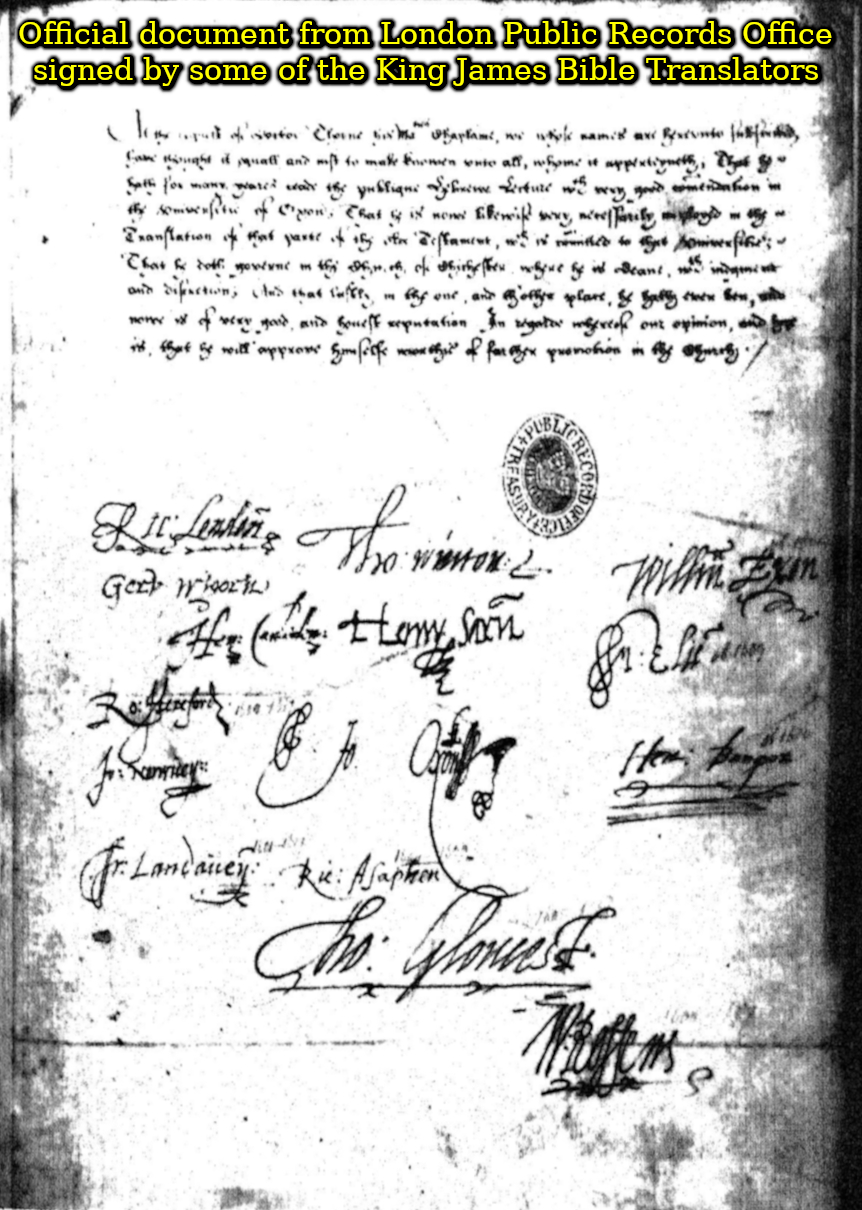 Official document from London Public Records Office
signed by some of the King James Bible Translators
At the request of Doctor Thorne his Ma Chaplaine, we whose names are hereunto subscribed,
have thought it equall and to make knowen unto all, whome it apperteyneth; That he
hath for many yeares reade the publique Hebrewe Lecture wth very good comendation in
the Universitie of Oxon; That he is nowe likewise very necessarily imployed in the
Translation of that parte of the Olde Testament, wch is comitted to that Universitie;
That he doth governe in the Church of Chichester, where he is Deane, wth iudgment
and discretion; And that lastly, in the one, and thother place, he hath ever ben, and
nowe is of very good, and honest reputation. In regarde whereof our opinion, and hope
is, that he will approve himselfe worthie of farther promotion in the Church.
PUBLIC RECORD OFFICE TREASURY
Ric: London
Tho: Winton:
Willm Exon
Gerv Wigorn
Hen:
Henry Sarum
M: Elie
Ro: Hereford
Jo: Norwicen:
Jo Oxon
Hen: Bangor
Fr: Landaven:
Ric: Asaphen
Tho: Glocest.
W Roffens